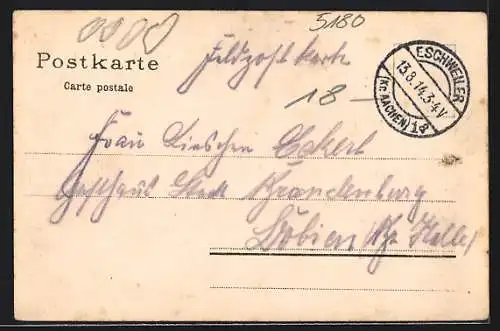 5180
Postkarte
Carte postale
Feldpost karte
18 –
ESCHWEILER
13.8.14.3-4V
(KR. AACHEN) 1a
Frau Lieschen Eckert
Gasthaus Stadt Brandenburg
Löbejün (Bz Halle)